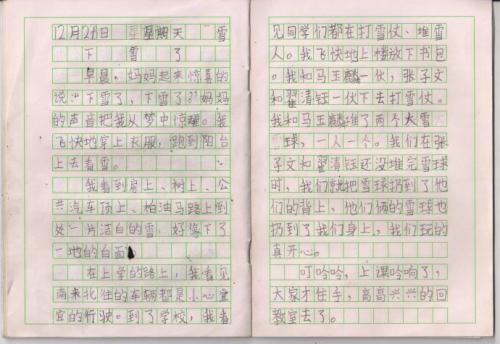 12月26日 星期天 雪
下雪了
早晨，妈妈起来惊喜的
说：“下雪了，下雪了！”妈妈
的声音把我从梦中惊醒。我
飞快地穿上衣服，跑到阳台
上去看雪。
我看到房上、树上、公
共汽车顶上、柏油马路上到
处一片洁白的雪，好像下了
一地的白面
在上学的路上，我看见
南来北往的车辆都是小心翼
的行驶。到了学校，我看
见同学们都在打雪仗、堆雪
人。我飞快地上楼放下书包
。我和马玉麟一伙，张子文
和翟清钰一伙下去打雪仗。
我和马玉麟堆了两个大雪
球，一人一个。我们在张
子文和翟清钰还没堆完雪球
时，我们就把雪球扔到了他
们的背上，他们俩的雪球也
扔到了我们身上，我们玩的
真开心。
叮呤呤，上课呤响了，
大家才住手，高高兴兴的回
教室去了。